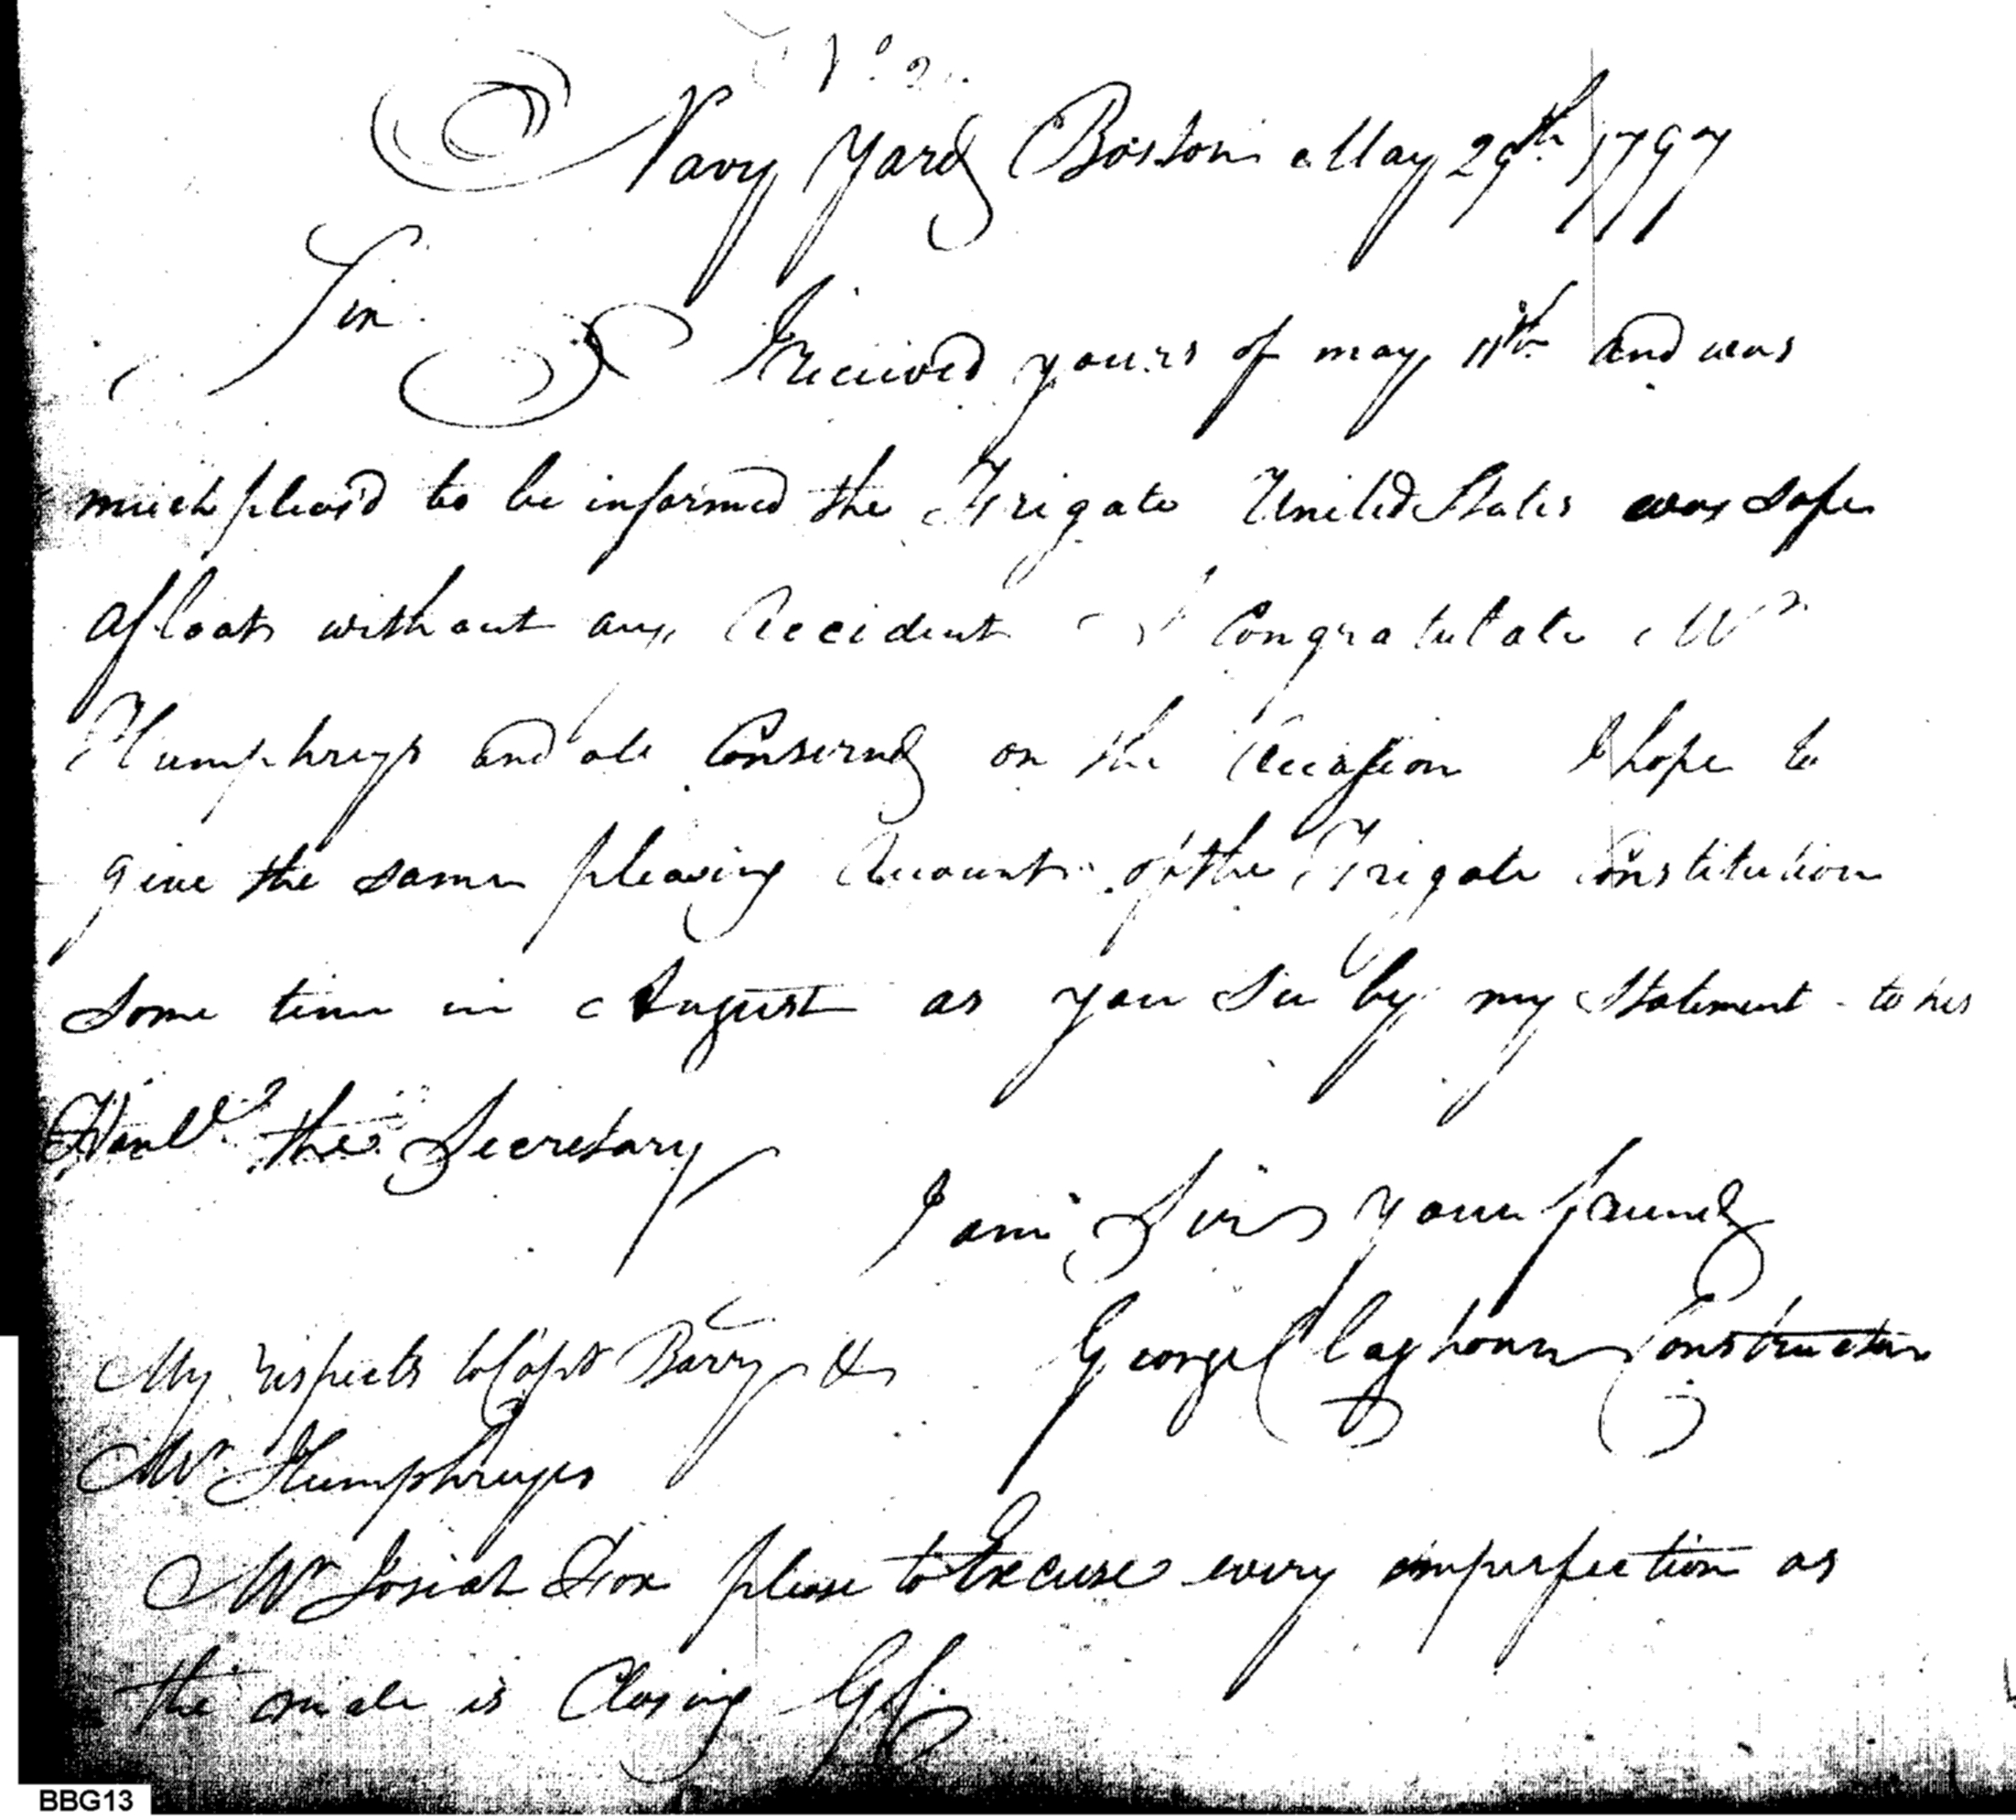 No 2
Navy Yard Boston May 29th 1797
Sir
I received yours of may 11th and was
much pleas'd to be informed the Frigate United States was safe
afloat without any Accident I Congratulate Mr
Humphreys and all Conserned on the Occasion I hope to
give the same pleasing Account of the Frigate Constitution
some time in August as you See by my Statement to his
Honle the Secretary
I am Sir your friend
George Claghorn Constructor
My respects to Capt Barry &
Mr Humphreys
Mr Josiah Fox please to Excuse every imperfection as
the male is Closing GC
BBG13